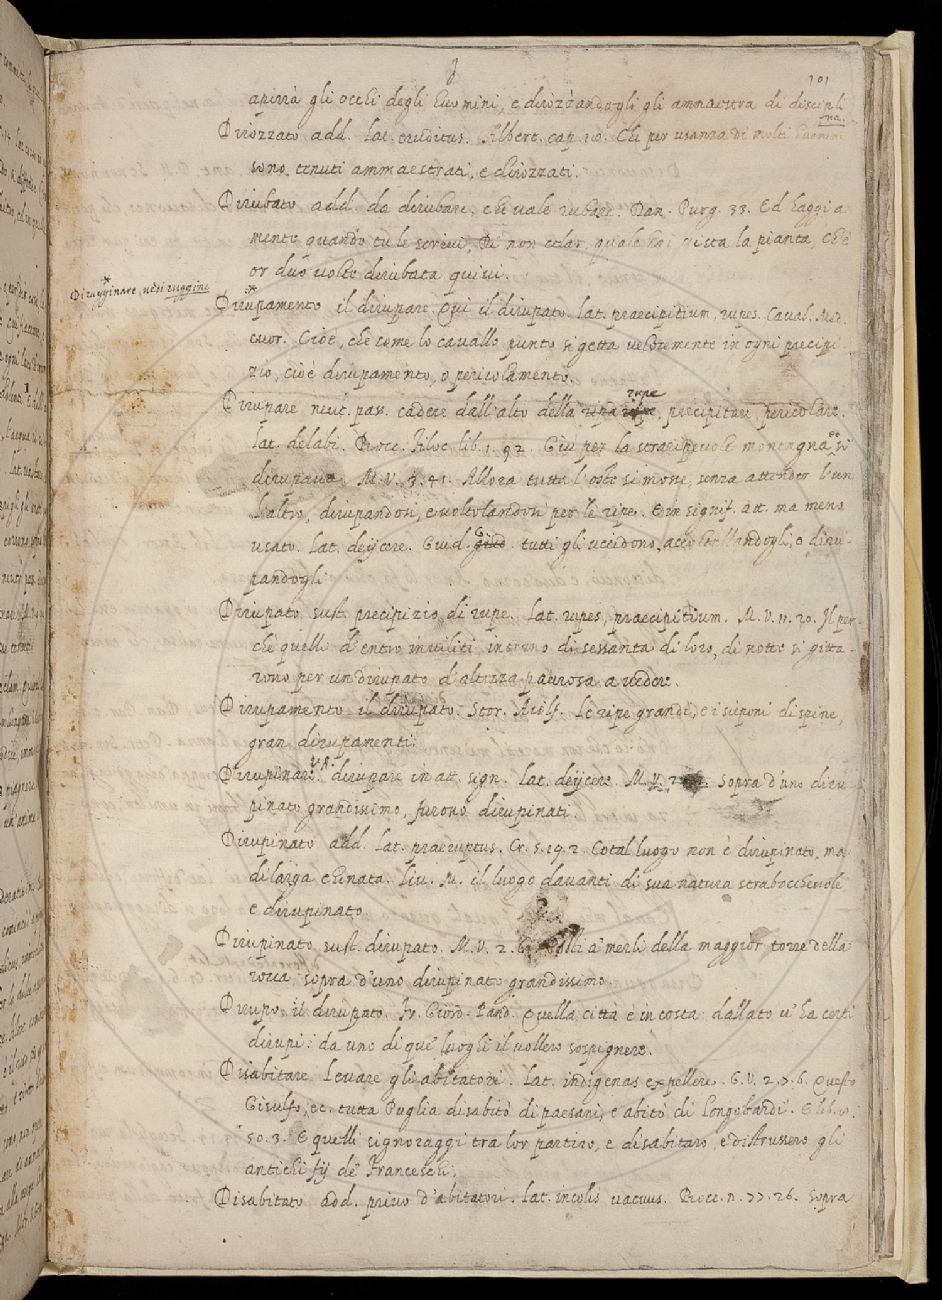 101
aprirà gli occhi degli huomini, e dirozzandogli gli ammaestra di discipli
na.
Dirozzato add. Lat. eruditus. Albert. cap. 10. Chi per usanza di molti huomini
sono tenuti ammaestrati, e dirozzati.
Dirubato add. da dirubare, che vale rubare. Dan. Purg. 33. Ed haggi a
mente quando tu le scrivi, Di non celar, quale hai vista la pianta, Ch'è
or duo volte dirubata quivi.
Dirugginare vedi ruggine
Dirupamento il dirupare. Qui il dirupato. Lat. praecipitium, rupes. Caval. Med.
cuor. Cioè, che come lo cavallo punto si getta velocemente in ogni precipi
zio, cioè dirupamento, o pericolamento.
rupe
Dirupare neut. pass. cadere dall'alto della precipitare, pericolare.
Lat. delabi. Bocc. Filoc. lib. 1. 92. Giu per la straripevole montagna si
dirupava. M. V. 3. 41. Allora tutta l'oste si mosse, senza attender l'un
l'altro, dirupandosi, e voltolandosi per le ripe. E in signif. att. ma meno
usato. Lat. deijcere. Guid. G. tutti gli uccidono, o diru-
pandogli
Dirupato sust. precipizio, di rupe. Lat. rupes, praecipitium. M. V. 11. 20. Il per-
chè quelli d'entro inviliti, insieme di sessanta di loro, di notte si gitta-
rono per un dirupato d'altezza paurosa a vedere.
Dirupamento il dirupato. Stor. Aiolf. Le ripe grandi, e i scriponi di spine,
gran dirupamenti.
V.A.
Dirupinare dirupare in att. sign. Lat. deijcere. M. V. 2. Sopra d'uno diru
pinato grandissimo, furono dirupinati
Dirupinato add. Lat. praeruptus. Cr. 5. 19. 2. Cotal luogo non è dirupinato, ma
di larga chinata. Liv. M. il luogo davanti di sua natura strabocchevole,
e dirupinato
Dirupinato sust. dirupato. M. V. 2. a' merli della maggior torre della
rocca, sopra d'uno dirupinato grandissimo.
Dirupo il dirupato. Fr. Giord. Pand. Quella città è in costa: dallato v'ha certi
dirupi: da uno di que' luoghi il vollero sospignere.
Disabitare Levare gli abitatori. Lat. indigenas expellere. G. V. 2. 7. 6. Questo
Gisulfo, ec. tutta Puglia disabitò di paesani, e abitò di Longobardi. E lib.
50. 3. E quelli signoraggi tra lor partiro, e disabitaro, e distrussero gli
antichi fij de' Franceschi.
Disabitato add. privo d'abitatori. Lat. incolis vacuus. Bocc. n. 77. 26. Sopra